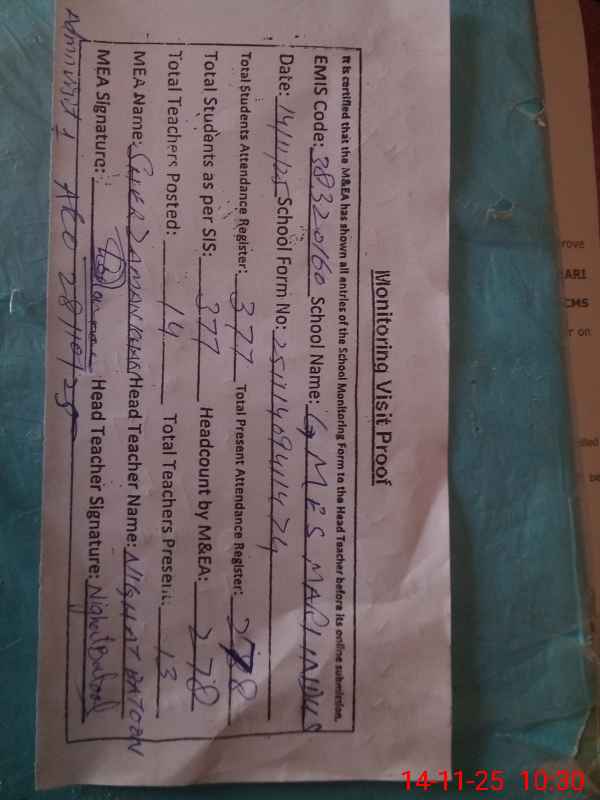 Monitoring Visit Proof
It is certified that the M&EA has shown all entries of the School Monitoring Form to the Head Teacher before its online submission.
EMIS Code: 38320160 School Name: G MES MARI INDUS
Date: 14/11/25 School Form No: 
Total Students Attendance Register: 377 Total Present Attendance Register: 278
Total Students as per SIS: 377 Headcount by M&EA: 278
Total Teachers Posted: 14 Total Teachers Present: 13
MEA Name: Head Teacher Name: NIGHAT BATOOL
MEA Signature: Head Teacher Signature: Nighat Batool
Admn visit 1 AEO 28/10/25
rove
ARI
CMS
r on
14-11-25 10:30